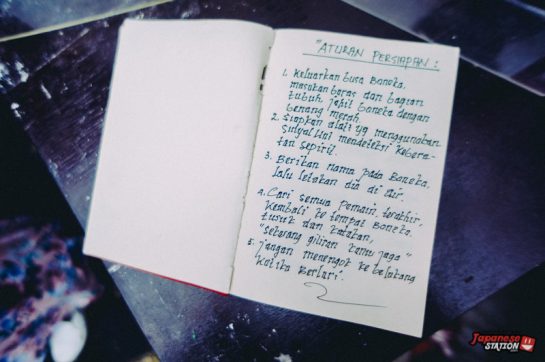 "ATURAN PERSIAPAN :
1. Keluarkan busa Boneka.
masukan beras dan bagian
tubuh, jahit boneka dengan
benang merah.
2. Siapkan alat yg menggunakan
Sinyal Untuk mendeteksi Kebera-
taan Sepirit.
3. Berikan nama pada Boneka,
lalu letakan dia di air.
4. Cari semua Pemain, terakhir,
Kembali ke tempat Boneka.
tusuk dan katakan,
"Sekarang giliran kamu jaga"
5. jangan menengok ke belakang
Ketika Berlari.
Japanese
STATION